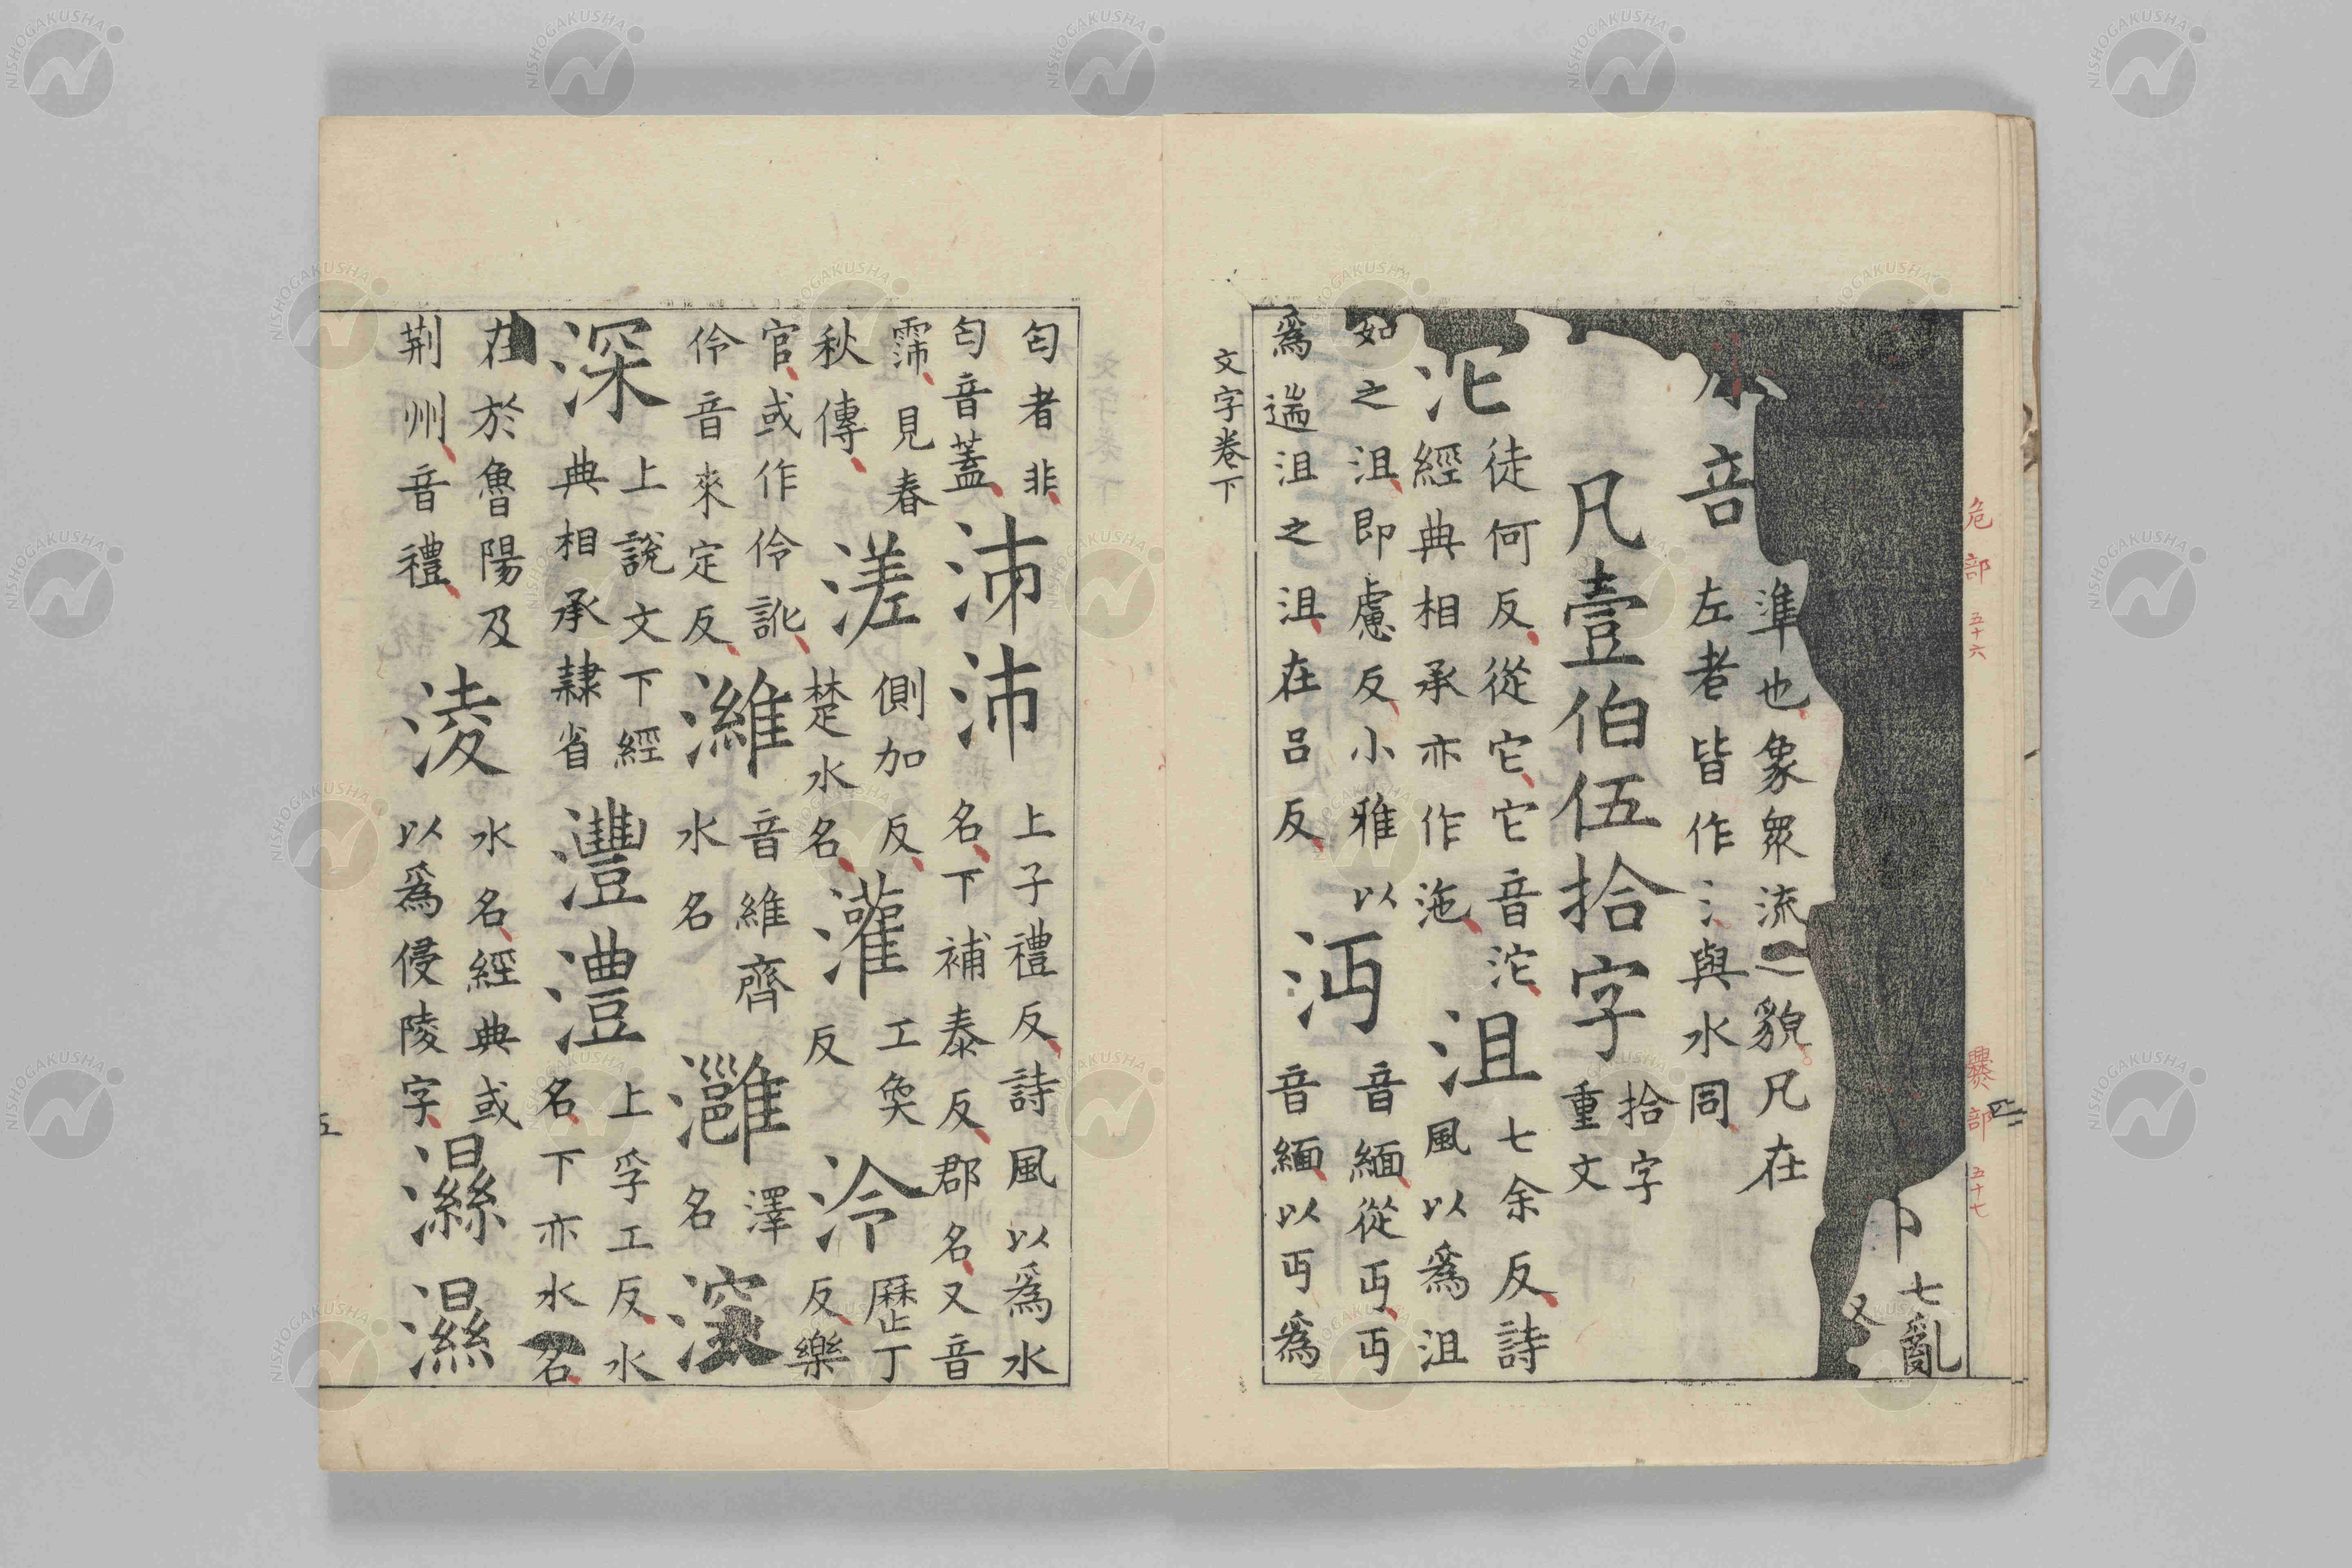 危部 五十六
爨部 五十七
七亂
又
水部 準也象衆流之貌凡在
左者皆作氵與水同
凡壹伯伍拾字 拾字
重文
沱 徒何反從它它音沱
經典相承亦作沲
沮 七余反詩
風以爲沮
如之沮即慮反小雅以
爲遄沮之沮在呂反
沔 音緬從丏丏
音緬以丏爲
文字卷下
匄者非
匄音蓋
沛 沛 上子禮反詩風以爲水
名下補泰反郡名又音
霈見春
秋傳
溠 側加反
楚水名
灌 工奐
反
泠 歷丁
反樂
官或作伶訛
伶音來定反
濰 音維齊
水名
灉 澤
名
深 上說文下經
典相承隸省
灃 澧 上孚工反水
名下亦水名
在於魯陽及
荆州音禮
淩 水名經典或
以爲侵陵字
濕 濕
五
NISHOGAKUSHA